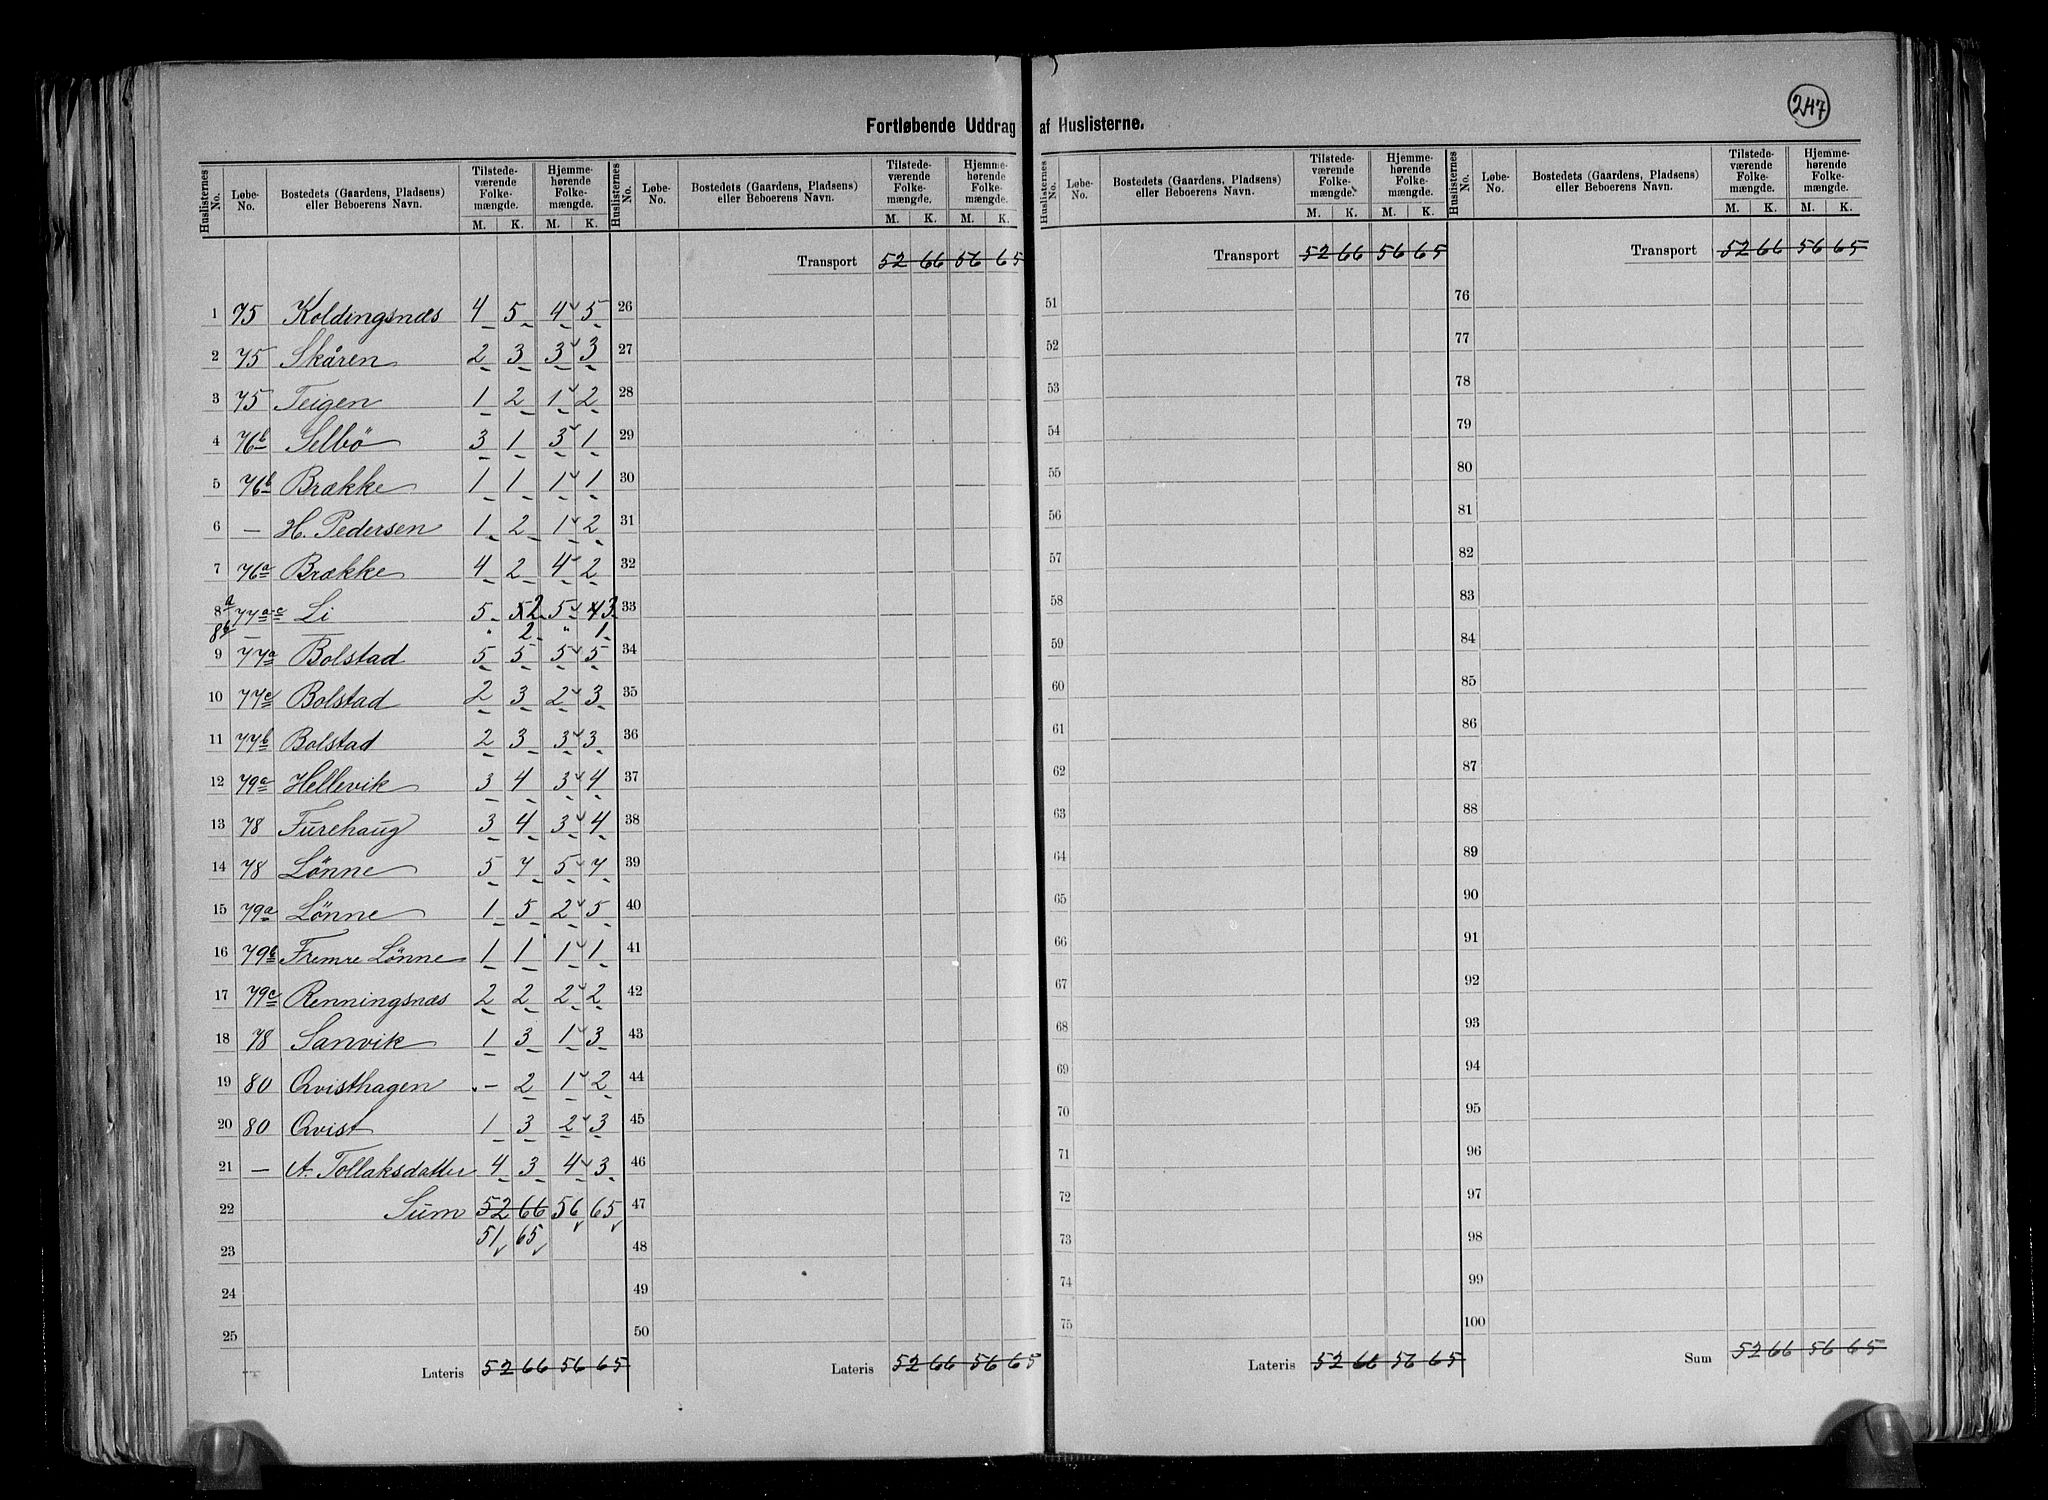 247
Fortløbende Uddrag af Huslisterne.
Huslisternes No. Løbe-No. Bostedets (Gaardens, Pladsens) eller Beboerens Navn. Tilstedeværende Folkemængde. M. K. Hjemmehørende Folkemængde. M. K.
Huslisternes No. Løbe-No. Bostedets (Gaardens, Pladsens) eller Beboerens Navn. Tilstedeværende Folkemængde. M. K. Hjemmehørende Folkemængde. M. K.
Huslisternes No. Løbe-No. Bostedets (Gaardens, Pladsens) eller Beboerens Navn. Tilstedeværende Folkemængde. M. K. Hjemmehørende Folkemængde. M. K.
Huslisternes No. Løbe-No. Bostedets (Gaardens, Pladsens) eller Beboerens Navn. Tilstedeværende Folkemængde. M. K. Hjemmehørende Folkemængde. M. K.
1 75 Koldingsnæs 4 5 4 5
2 75 Skåren 2 3 3 3
3 75 Teigen 1 2 1 2
4 76b Selbö 3 1 3 1
5 76b Brække 1 1 1 1
6 — H. Pedersen 1 2 1 2
7 76a Brække 4 2 4 2
8a 77a c Li 5 5 2 5 4 3
8b — — " 2 " 1
9 77a Bolstad 5 5 5 5
10 77c Bolstad 2 3 2 3
11 77b Bolstad 2 3 3 3
12 79a Hellevik 3 4 3 4
13 78 Furehaug 3 4 3 4
14 78 Lönne 5 7 5 7
15 79a Lönne 1 5 2 5
16 79b Fremre Lönne 1 1 1 1
17 79c Renningsnæs 2 2 2 2
18 78 Sanvik 1 3 1 3
19 80 Qvisthagen - 2 1 2
20 80 Qvist 1 3 2 3
21 — A. Tollaksdatter 4 3 4 3
22 Sum 52 66 56 65
51 65
23
24
25
Lateris 52 66 56 65
Transport 52 66 56 65
26
27
28
29
30
31
32
33
34
35
36
37
38
39
40
41
42
43
44
45
46
47
48
49
50
Lateris 52 66 56 65
Transport 52 66 56 65
51
52
53
54
55
56
57
58
59
60
61
62
63
64
65
66
67
68
69
70
71
72
73
74
75
Lateris 52 66 56 65
Transport 52 66 56 65
76
77
78
79
80
81
82
83
84
85
86
87
88
89
90
91
92
93
94
95
96
97
98
99
100
Sum 52 66 56 65